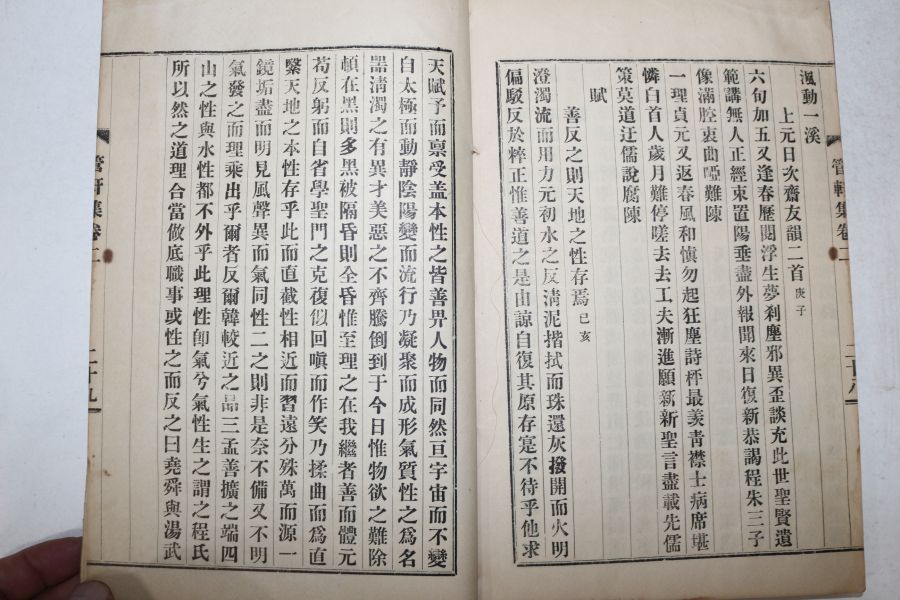 風動一溪
上元日次齋友韻二首庚子
六旬加五又逢春歷閱浮生夢刹塵邪異歪談充此世聖賢遺
範講無人正經束置陽垂盡外報聞來日復新恭謁程朱三子
像滿腔衷曲啞難陳
一理貞元又返春風和愼勿起狂塵詩枰最羡靑襟士病席堪
憐白首人歲月難停嗟去去工夫漸進願新新聖言盡載先儒
策莫道迂儒說腐陳
賦
善反之則天地之性存焉己亥
澄濁流而用力元初水之反淸泥揩拭而珠還灰撥開而火明
偏駁反於粹正惟善道之是由諒自復其原存寔不待乎他求
管軒集卷一
二十八
天賦予而禀受盖本性之皆善畀人物而同然亘宇宙而不變
自太極而動靜陰陽變而流行乃凝聚而成形氣質性之爲名
噐淸濁之有異才美惡之不齊騰倒到于今日惟物欲之難除
頓在黑則多黑被隔昏則全昏惟至理之在我繼者善而體元
苟反躬而自省學聖門之克復似回嗔而作笑乃揉曲而爲直
繄天地之本性存乎此而直截性相近而習遠分殊萬而源一
鏡垢盡而明見風聲異而氣同性二之則非是奈不備又不明
氣發之而理乘出乎爾者反爾韓較近之品三孟善擴之端四
山之性與水性都不外乎此理性卽氣兮氣性生之謂之程氏
所以然之道理合當做底職事或性之而反之曰堯舜與湯武
管軒集卷一
二十九